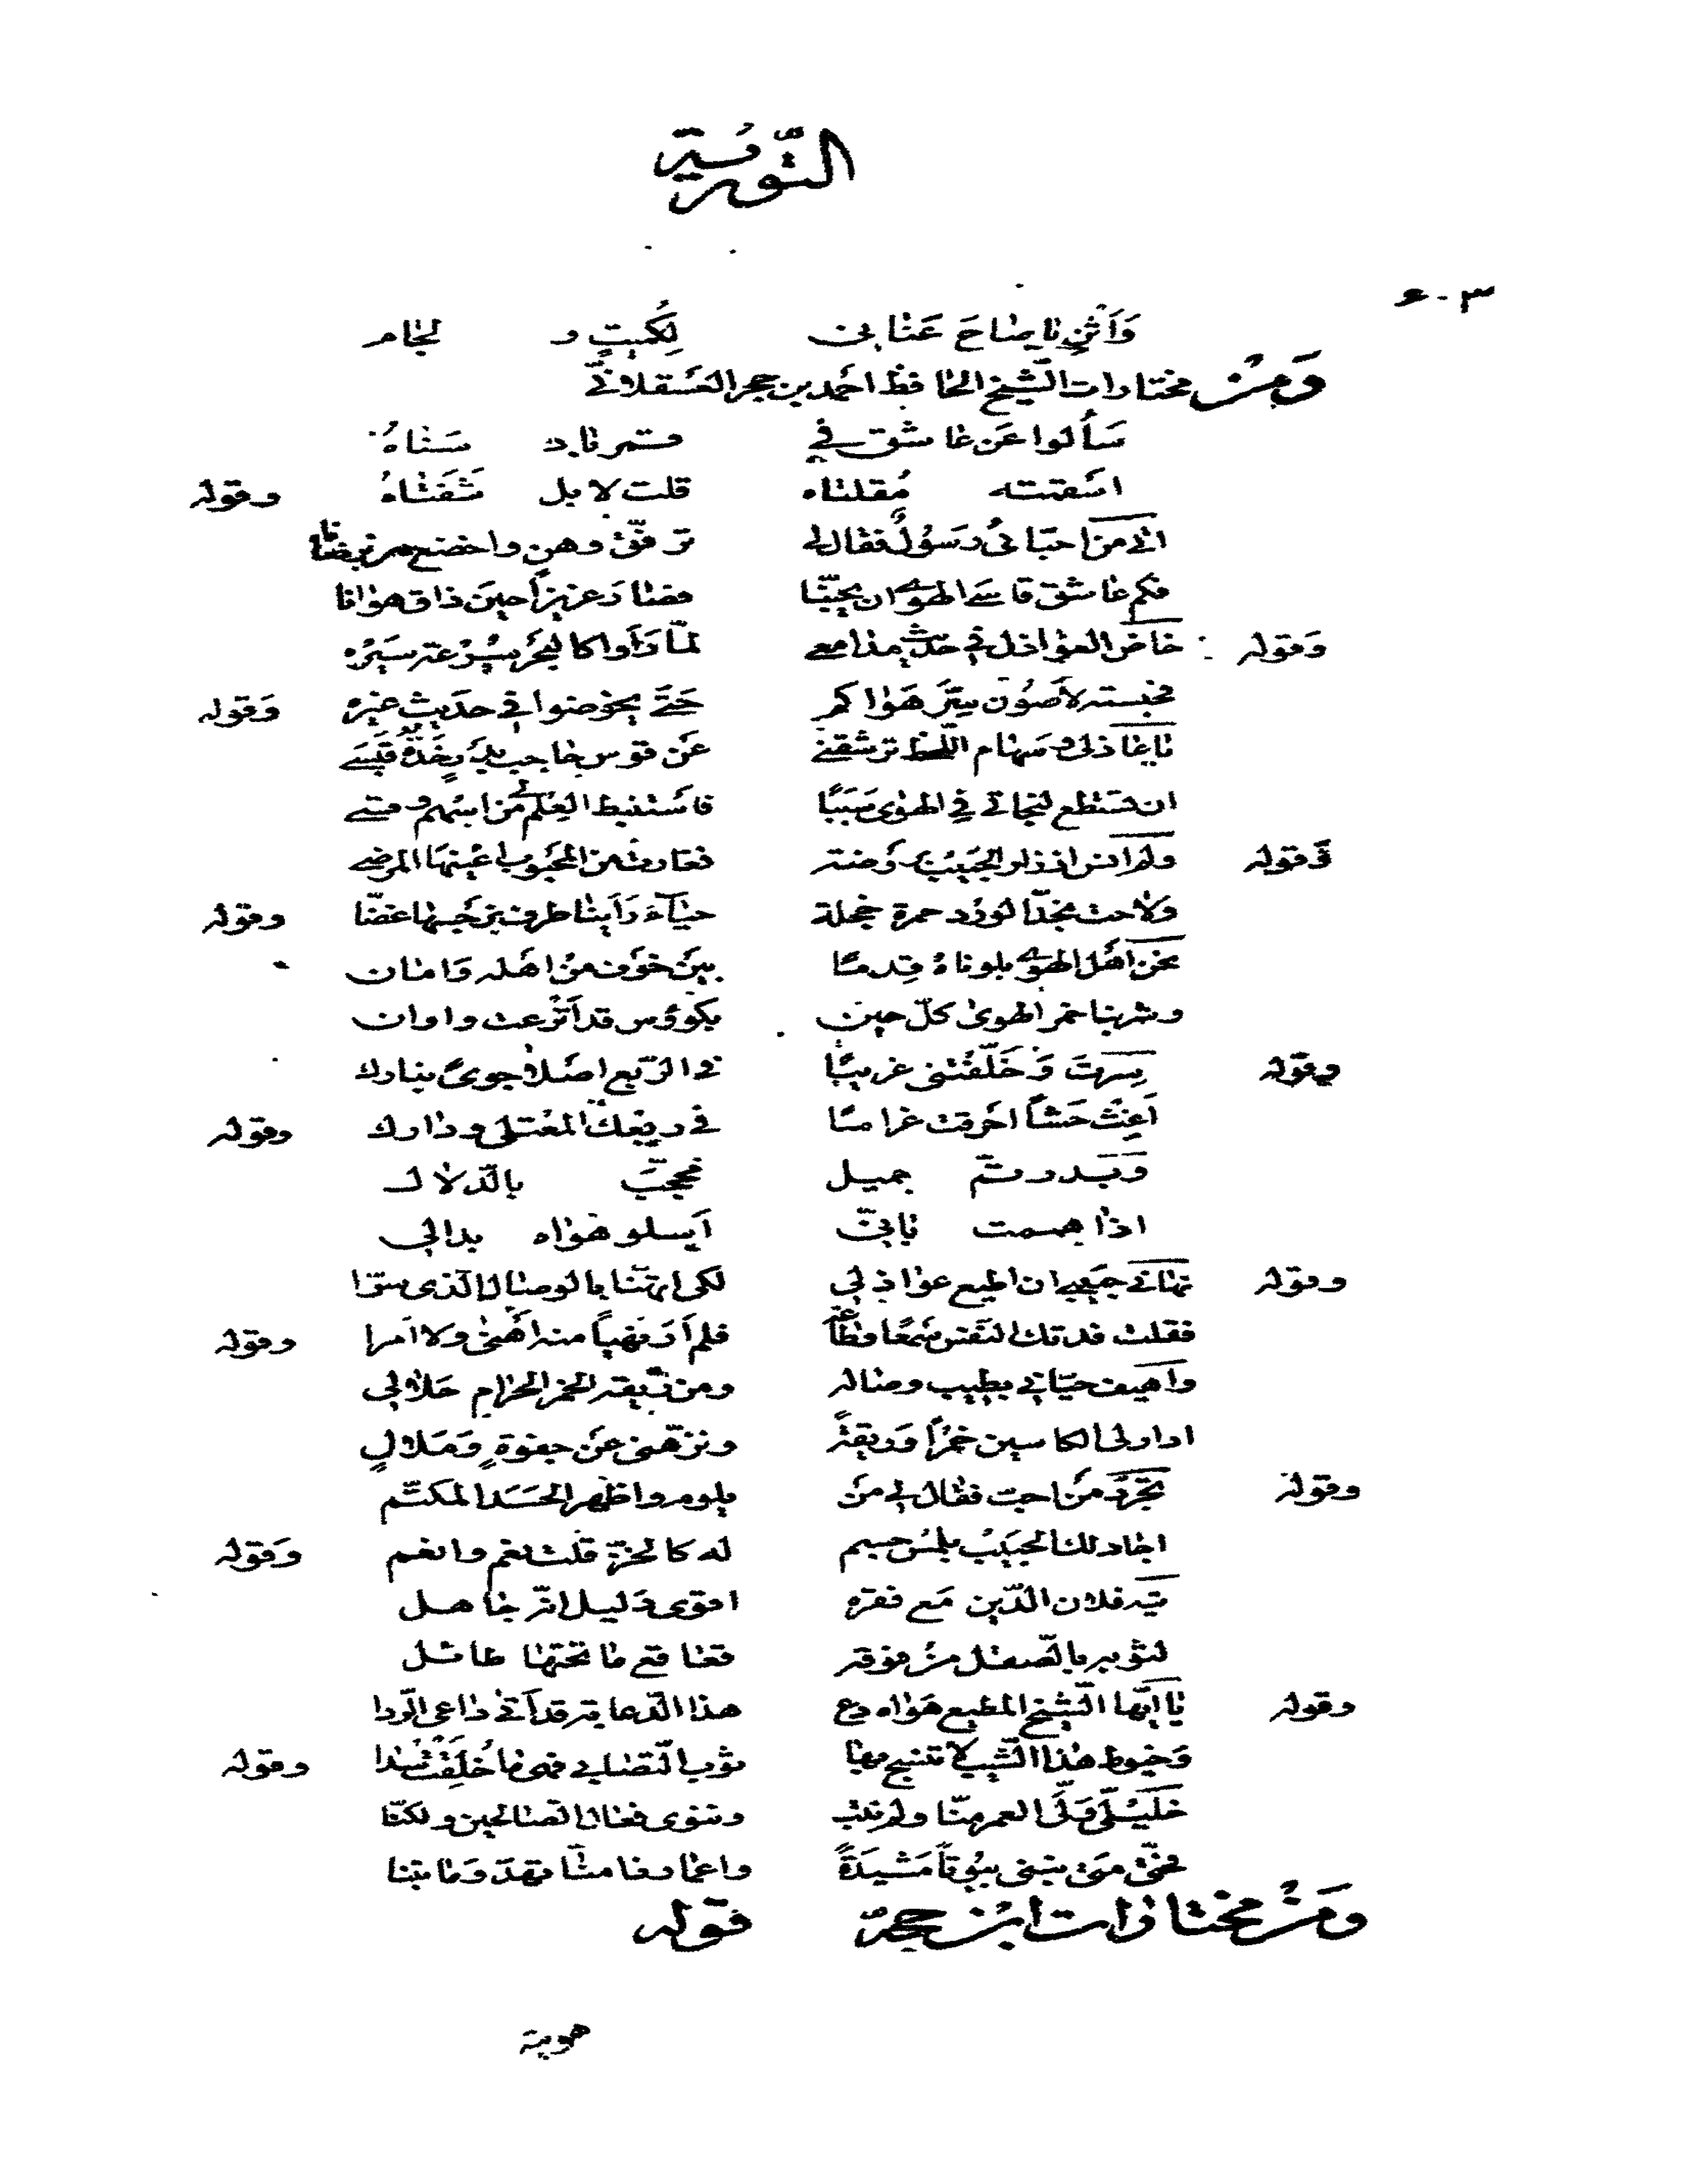 التّورية
٤٠٣
وَاثْنِ يا صاحَ عناني لِكُميتٍ و لجام
وَمِنْ مختارات الشّيخ الحافظ احمد بن حجر العَسقلانيّ
سَألوا عَن عاشق في قمر باد سَناهُ
اسقمته مُقلتاه قلت لا بل شَفَتاهُ وقوله
اتى من احبّائي رَسُولٌ فقال لي ترفّق وهن واخضع
فكم عاشق قاسى الهوى ان يحبّنا فصار عزيزاً حين ذاق هوانا
وَقوله خاض العواذل في حديث مدامعي لمّا رَأوا كالبحر سرعة سَيره
فحبسته لاصُون سرّ هَواكم حَتّى يخوضوا في حديث غيره وَقوله
يا عاذلي وسهام اللّحظ ترشقني عَن قوس حاجب
ان تستطع لنجاتي في الهوى سَبَبًا فاستنبط العِلم من
وَقوله ولم انس اذ زار الحَبيبُ روضته فغارت من المحبوب اعينها المرضى
وَلاحت بخدّ الورد حمرة خجلة حياءً رَأينا طرف نرجسها غضّا وقوله
نحن اهل الهوى بلوناهُ قِدمًا بين خوف من اهله وَامان
وشربنا خمر الهوى كلّ حين بكؤوس قد اُترعت واوان
وقوله سرت وَخَلّفتني غريبًا في الرّبع اصلى جوىً بنارك
اَغِثْ حَشاً احرقت غرامًا في ربعك المعتلي ودارك وقوله
وَبَدر تمّ جميل محجّب بالدّلال
اذا هممت بانّي اَسلو هواه بدا لي
وقوله نهاني حبيبي ان اطيع عواذلي لكي اتهنّا بالوصال الّذي سرّا
فقلت فدتك النّفس سَمعًا وطاعة فلم اَرَ نهياً منه اَهنى ولا امرا وقوله
واَهيف حيّاني بطيب وصاله ومن ريقه الخمر الحرام حَلا لي
ادار لي الكاسين خمراً وَريقةً ونزّهني عَن جفوةٍ وَمَلالٍ
وقوله تجرّدَ مَن احبّ فقال لي مَن يلوم واظهر الحَسَد المكتّم
اجاد لك الحبيب بلمس جسم له كالخزّ قلت نعم وانعم وَقوله
تيه فلان الدّين مَع فقره اقوى دَليل انّه جاهل
لثوبه بالصّقل من فوقه قعاقع ما تحتها طائل
وقوله يا اَيّها الشّيخ المطيع هَواه دع هذا الدّعابة قد اَتى داعي الرّدا
وَخيوط هذا الشّيب لا تنسج بها ثوب التّصابي فهي ما خُلِقَتْ سُدا وقوله
خَليليَّ وَلّى العمر منّا ولم نتب وننوي فعال الصّالحين ولكنّا
فحتّى متى نبني بيوتاً مَشيدَةً واعمارنا منّا تهدّ وَما تبنا
وَمِنْ مختارات ابن حجر قوله
هوية